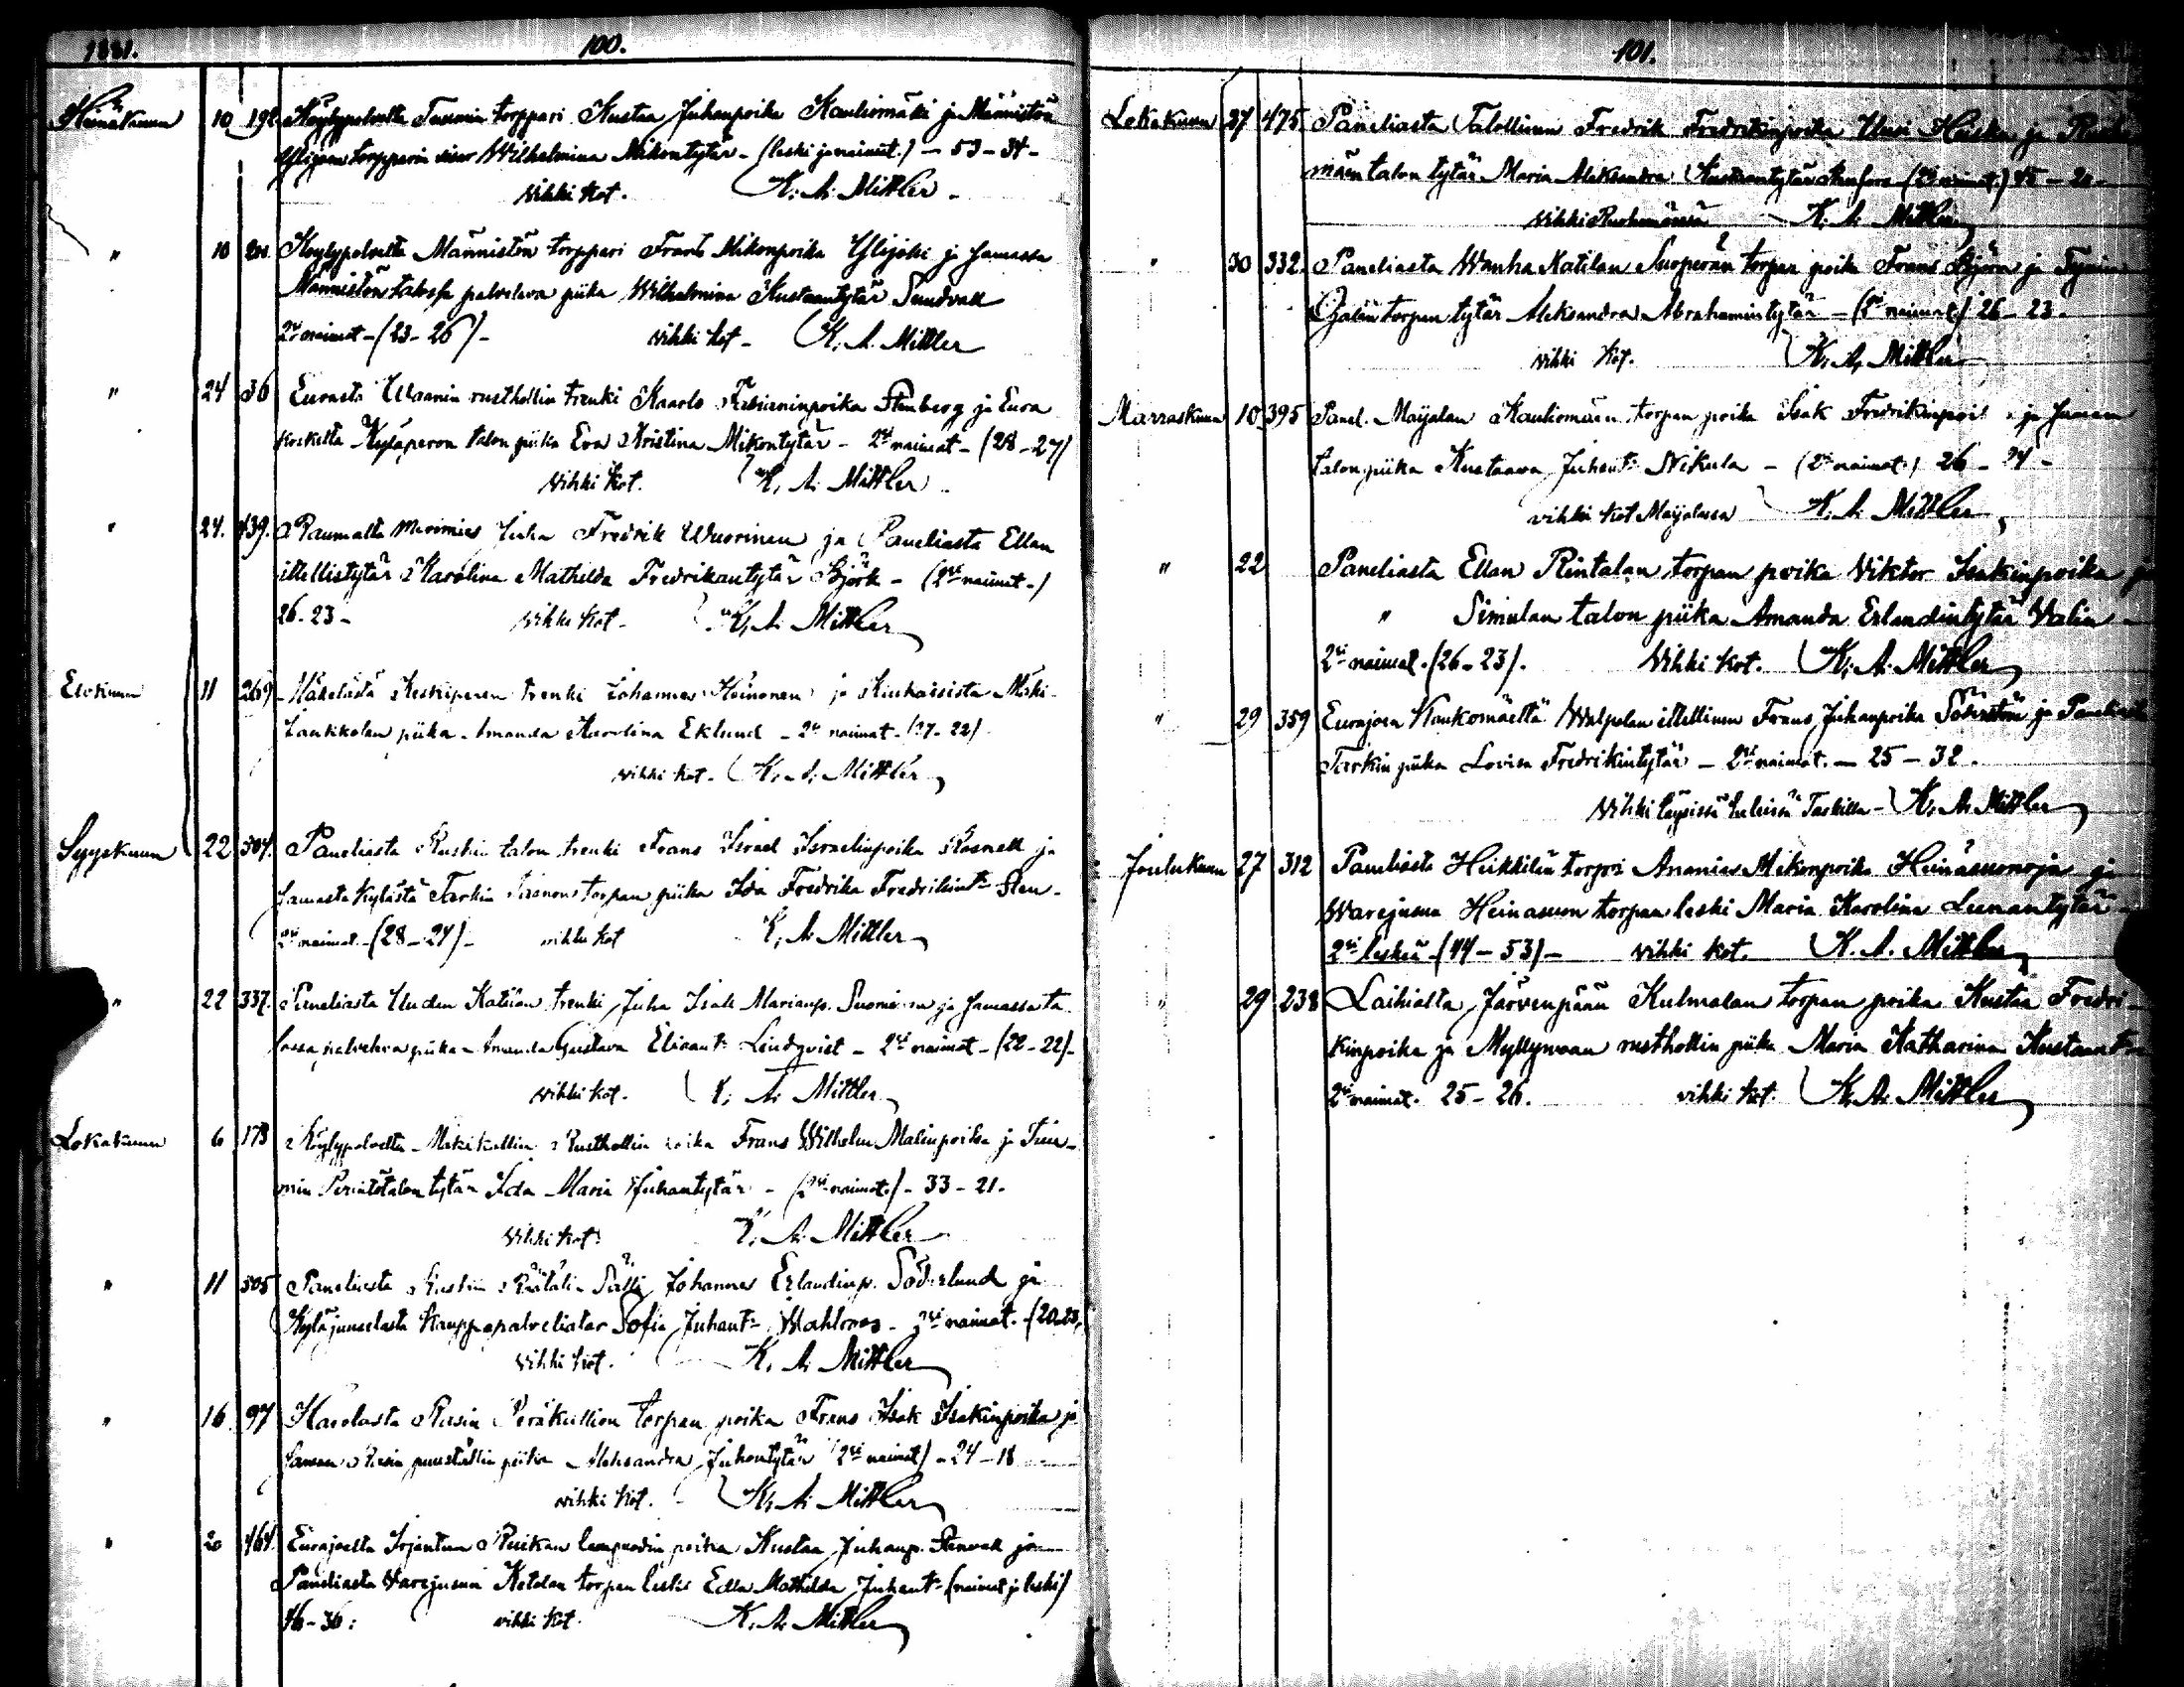 1881.
100.
Heinäkuun 10 192 Köylypolvelta Tuomin torppari Kustaa Juhanpoika Kauliomäki ja Männistön
Ylijoen torpparin sisar Wilhelmina Mikontytär - (leski ja naimat.) - 53 - 34 -
vihki kot. K. A. Mittler.
" 10 Köylypolvelta Männistön torppari Frans Mikonpoika Ylijoki ja samassa
Männistön talossa palveleva piika Wilhelmina Kustaantytär Sundvall
2si naimat - (23 - 26) - vihki kot - K. A. Mittler
" 24 36 Eurasta Waanin rusthollin trenki Kaarlo Fabianinpoika Stenberg ja Eura
koskelta Kyläperon talon piika Eva Kristina Mikontytär - 2si naimat - (28 - 27)
vihki kot. K. A. Mittler.
" 24. 439. Raumalta Merimies Juha Fredrik Wuorinen ja Paneliasta Ellan
itellistytär Karolina Mathilda Fredrikantytär Björk - (2si naimat -)
26 - 23 - vihki kot - K. A. Mittler
Elokuun 11 269 Mäkelästä Keskiperen trenki Johannes Heinonen ja Kiukaisista Mäki-
Laukkolan piika Amanda Karolina Eklund - 2si naimat - (27 - 22)
vihki kot. K. A. Mittler
Syyskuun 22 304. Paneliasta Ruskin talon trenki Frans Israel Israelinpoika Rosnell ja
samasta kylästä Tarkin torpan piika Ida Fredrika Fredrikint: Sten -
2si naimat - (28 - 24) - vihki kot K. A. Mittler
" 22 337. Paneliasta Uuden Katilan trenki Juha Isak Marianp. Suominen ja samassa ta
lossa palveleva piika Amanda Gustava Elisant: Lindqvist - 2si naimat - (22 - 22) -
vihki kot. K. A. Mittler
Lokakuun 6 173 Köylypolvelta Mäkikallin Rusthollin poika Frans Wilhelm Malinpoika ja Tuo-
min Perintötalon tytär Ida Maria Juhantytär - (2si naimat.) - 33 - 21.
vihki kot: K. A. Mittler
" 11 305 Paneliasta Ruskin Räätäli Sälli Johannes Erlandinp. Söderlund ja
Kyläjunnelasta Kauppapalveliatar Sofia Juhant: Wahlroos - 2si naimat. - (20 - 23,
vihki kot. K. A. Mittler
" 16. 97 Harolasta Rasin Peräkallion torpan poika Frans Isak Isakinpoika ja
saman Rasin puustellin piika Aleksandra Juhontytär (2si naimat) - 24 - 18
vihki kot. K. A. Mittler
" 20 464. Eurajoelta Irjantun Ruikan lampuodin poika Kustaa Juhanp. Stenvall ja
Paneliasta Varejusun Ketolan torpan leski Edla Mathilda Juhant: (naimat ja leski)
46 - 36: vihki kot. K. A. Mittler
101.
Lokakuun 27 475 Paneliasta Talollinen Fredrik Fredrikinpoika Uusi Heiska ja
män talon tytär Maria Aleksandra Kustaantytär (2si naimat.)
vihki K. A. Mittler
" 30 332. Paneliasta Wanha Katilan Suoperän torpan poika Frans Björn ja
Ojalan torpan tytär Aleksandra Abrahamintytär - (2si naimat.) 26 - 23.
vihki kot. K. A. Mittler
Marraskuun 10 395 Panel. Maijalan Kauliomäen torpan poika Isak Fredrikinpoi ja saman
talon piika Kustaava Juhant: Nikula - (2si naimat.) 26 - 24 -
vihki kot Maijalassa K. A. Mittler
" 22 Paneliasta Ellan Rintalan torpan poika Viktor Isakinpoika ja
" Simulan talon piika Amanda Erlandintytär Walin -
2si naimat. (26 - 23). Vihki kot. K. A. Mittler
" 29 359 Eurajoen Kaukomäeltä Walpolan itellinen Frans Juhanpoika ja Paneliasta
Tarkin piika Lovisa Fredrikintytär - 2si naimat. - 25 - 32.
Vihki K. A. Mittler
Joulukuun 27 312 Paneliasta Heikkilän torpri Ananias Mikonpoika Heinäsuonoja ja
Warejusun Heinasuon torpan leski Maria Karolina Leenantytär -
2si leskiä - (44 - 53) - vihki kot. K. A. Mittler
" 29 238 Laihialta Järvenpään Kulmalan torpan poika Kustaa Fredri-
kinpoika ja Myllymaan rusthollin piika Maria Katharina Kustaant
2si naimat. 25 - 26. vihki kot. K. A. Mittler